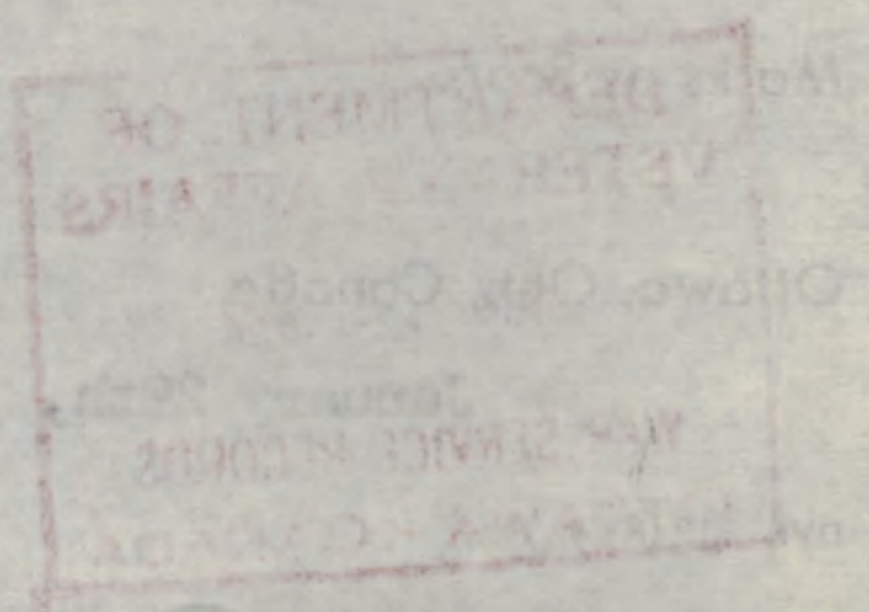 DEPARTMENT OF
VETERANS AFFAIRS
Ottawa, Ont., Canada
January
WAR SERVICE RECORDS
OTTAWA - CANADA